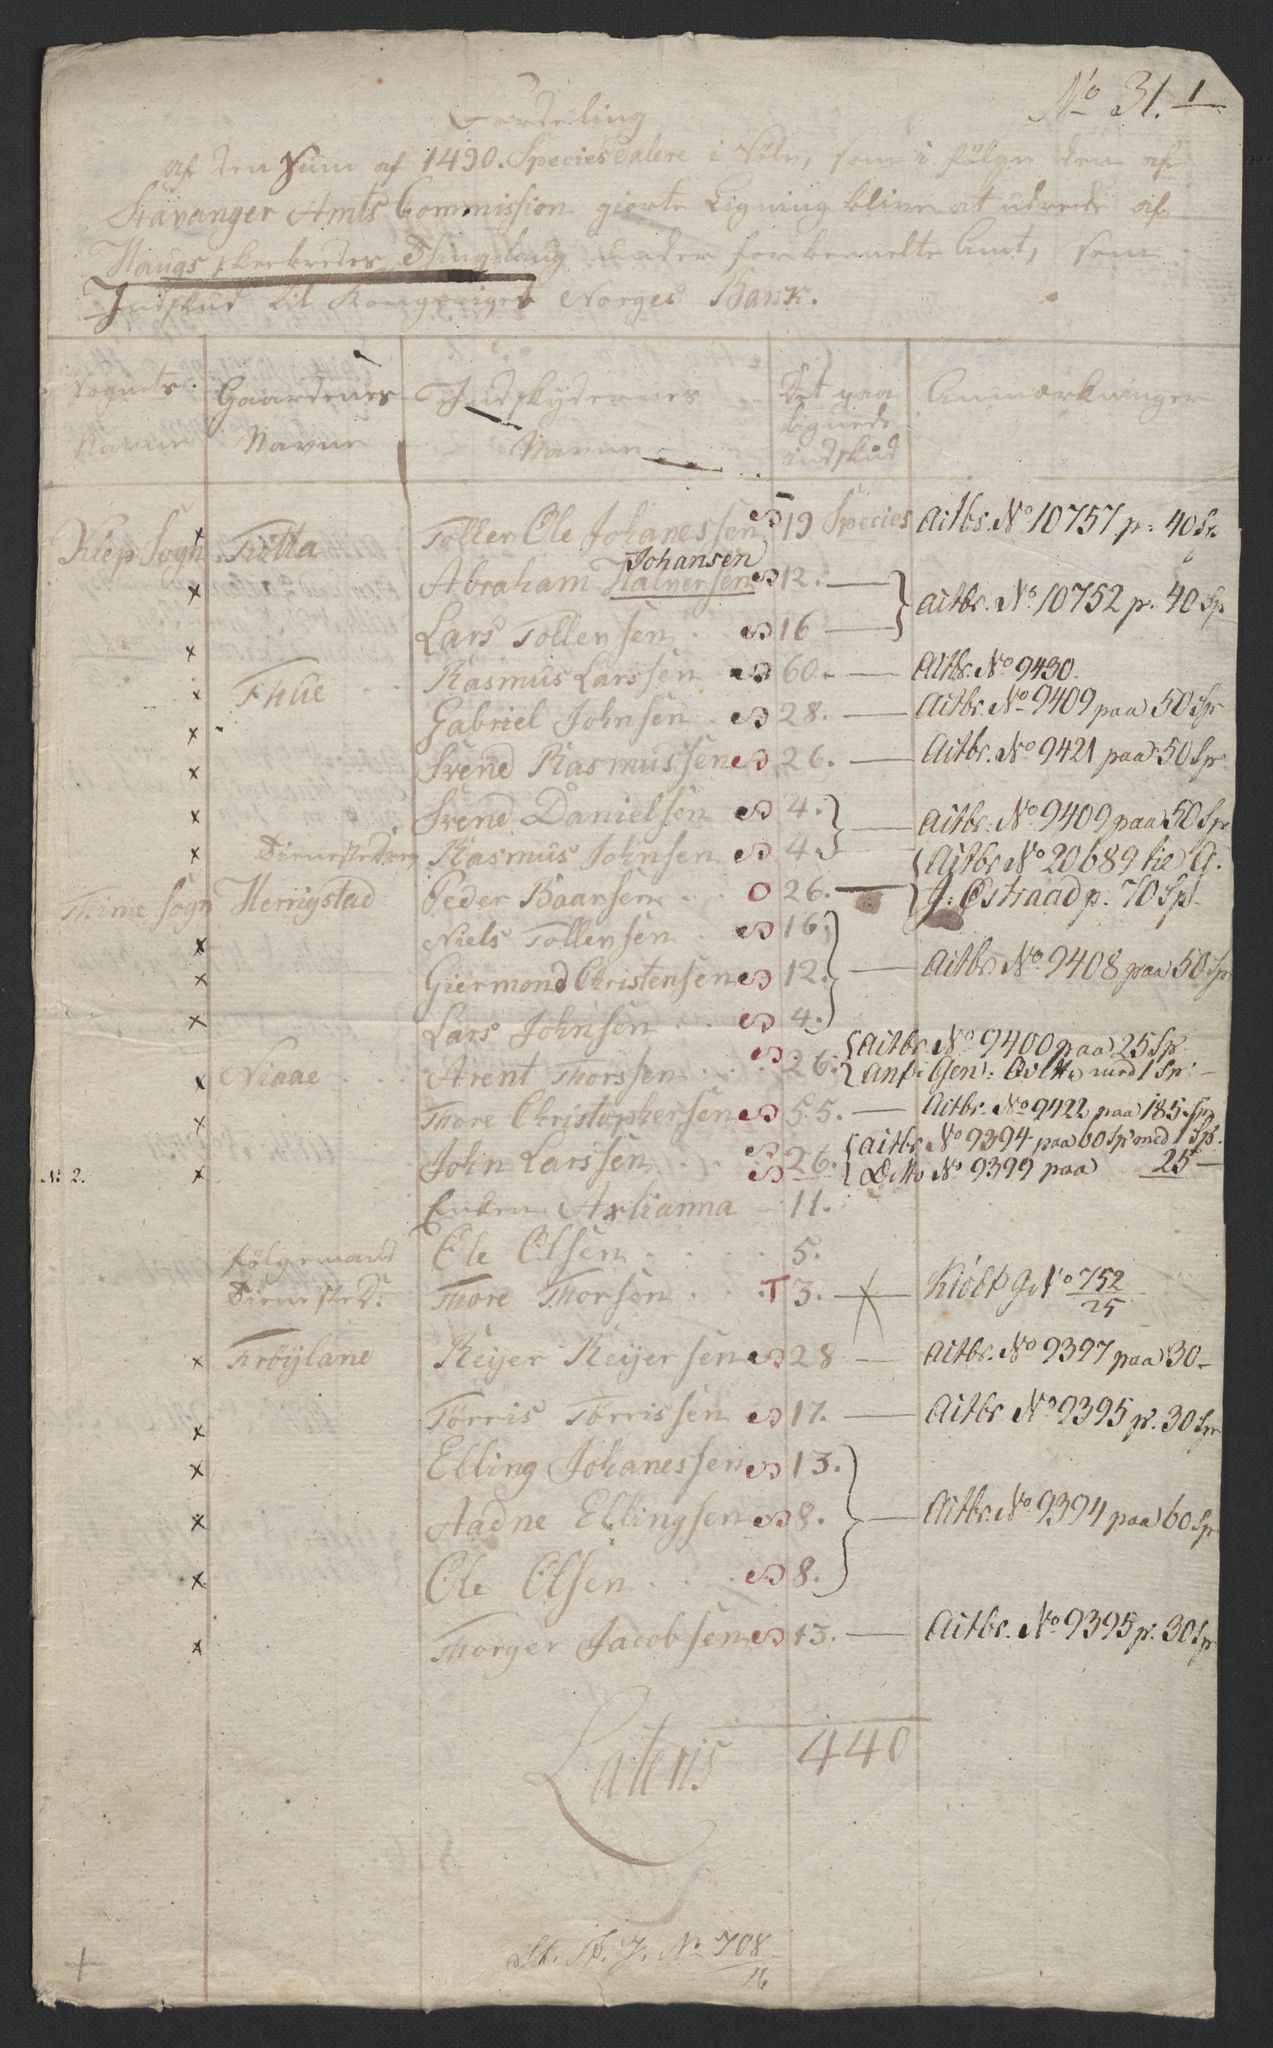 No 31. 1
Fordeling
af den Sum af 1490. Speciesdalere i Sølv, som i følge den af
Stavanger Amts Commission giorte Ligning bliver at udrede af
Haugs skeebredes Thinglaug under forbemeldte Amt, som
Indskud til Kongeriget Norges Bank.
Sognets Navne | Gaardenes Navne | Indskydernes Navne | Det paa lignede indskud | Anmærkninger
Klep Sogn x Tiøtta Toller Ole Johanessen 19 Species Actbr. No 10757 p. 40 Sp.
Johansen
x Abraham Halversen 12. — Actbr. No 10752 p. 40 Sp.
x Lars Tollensen 16 —
x Thue Rasmus Larssen 60. — Actbr. No 9430.
x Gabriel Johnsen 28. — Actbr. No 9409 paa 50 Sp
x Svend Rasmussen 26. — Actbr. No 9421 paa 50 Sp
x Svend Danielsen 4. — Actbr. No 9409 paa 50 Sp
x Tienestedreng Rasmus Johnsen 4.
Thime Sogn Herrigstad Peder Baarsen O 26. — Actbr No 20689 til A.
J. Østraad p. 70 Sp.
x Niels Tollensen 16.
x Giermond Christensen 12. — Actbr No 9408 paa 50 Sp
x Lars Johnsen 4.
x Niaae Arent Thorssen 26. Actbr No 9400 paa 25 Sp.
Anf. Gen: Qvitt. med 1 Sp. —
x Thore Christophersen 55. — Actbr. No 9422 paa 185 Sp
No 2. x John Larssen 26. Actbr No 9394 paa 60 Sp med 1 Sp.
Ditto No 9399 paa 25 —
Enken Axlianna 11.
følgemand Ole Olsen 5.
Tienested: Thore Thorsen T 3. — Kiøbt G. No 752/25
x Trøÿlane Reÿer Reÿersen 28 — Actbr. No 9397 paa 30 —
x Tørris Tørrissen 17. — Actbr No 9395 p. 30 Sp
x Elling Johanessen 13.
x Aadne Ellingsen 8. — Actbr. No 9394 paa 60 Sp
x Ole Olsen 8.
x Thorger Jacobsen 13. — Actbr. No 9395 p. 30 Sp
Lateris 440
St. Th. J. No 708/16